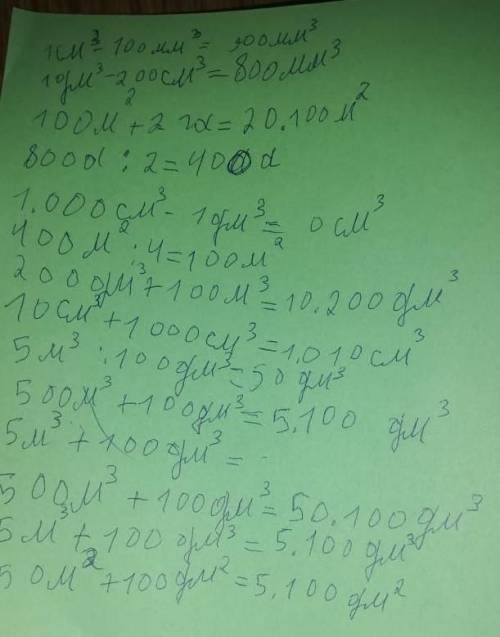 1см³ - 100мм³ = 900мм³
1дм³ - 200см³ = 800мм³
100м² + 2 га = 20.100м²
800а : 2 = 400 а
1.000см³ - 1дм³ = 0 см³
400м² : 4 = 100м²
200дм³ + 100м³ = 10.200дм³
10см³ + 1000см³ = 1.010см³
5м³ : 100дм³ = 50дм³
500м³ + 100дм³ = 5.100 дм³
5м³ + 100дм³ =
500м³ + 100дм³ = 50.100дм³
5м³ + 100дм³ = 5.100дм³
50м² + 100дм² = 5.100дм²